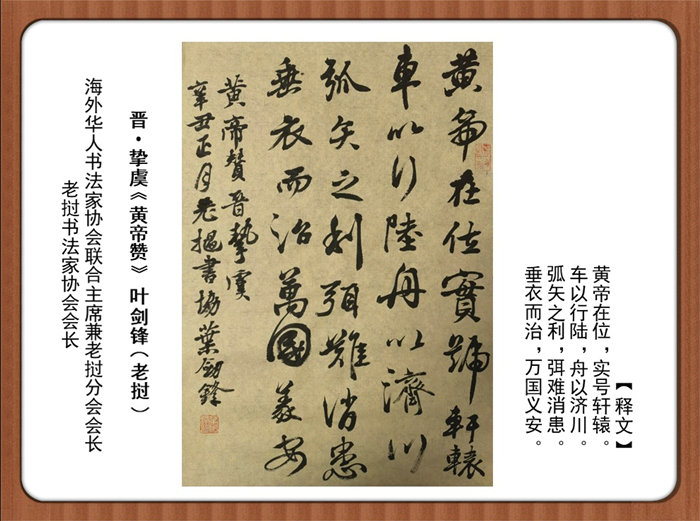 【释文】
黄帝在位，实号轩辕。
车以行陆，舟以济川。
弧矢之利，弭难消患。
垂衣而治，万国义安。
黄帝在位實號軒轅
車以行陸舟以濟川
弧矢之利弭難消患
垂衣而治萬國義安
黄帝贊晉摯虞
辛丑正月老撾書協葉劍鋒
晋·挚虞《黄帝赞》 叶剑锋（老挝）
海外华人书法家协会联合主席兼老挝分会会长
老挝书法家协会会长